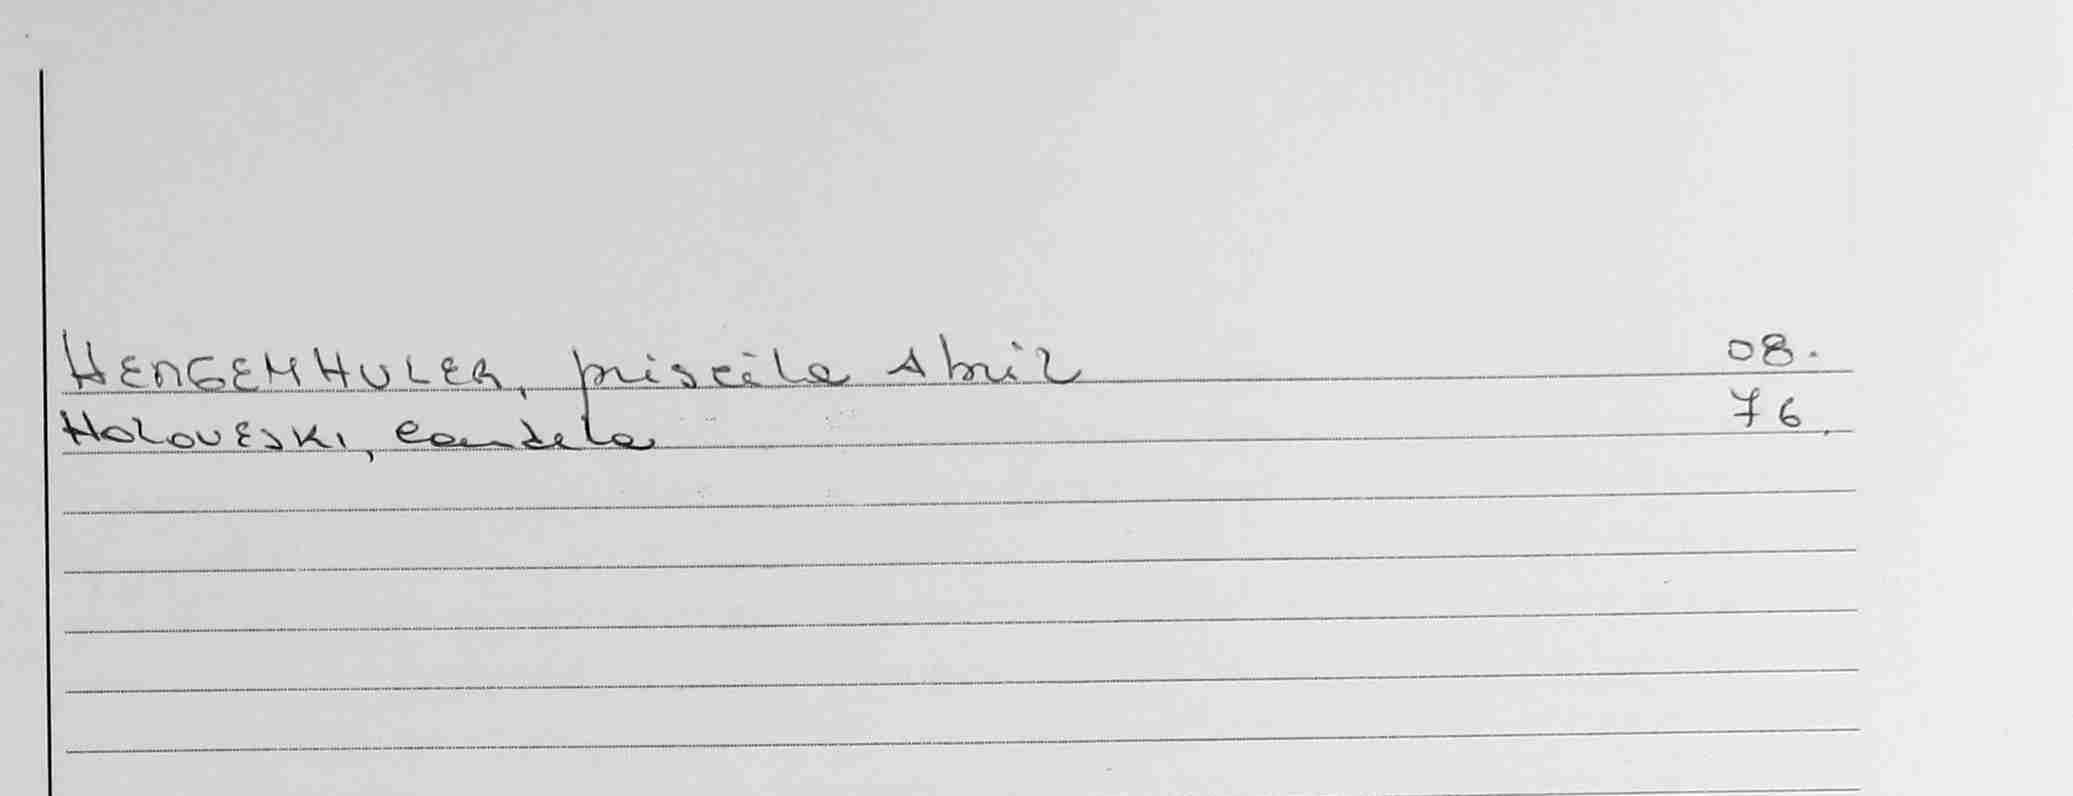 HENGEMHULER, priscila Abril 08.
HOLOVESKI, candela 76.